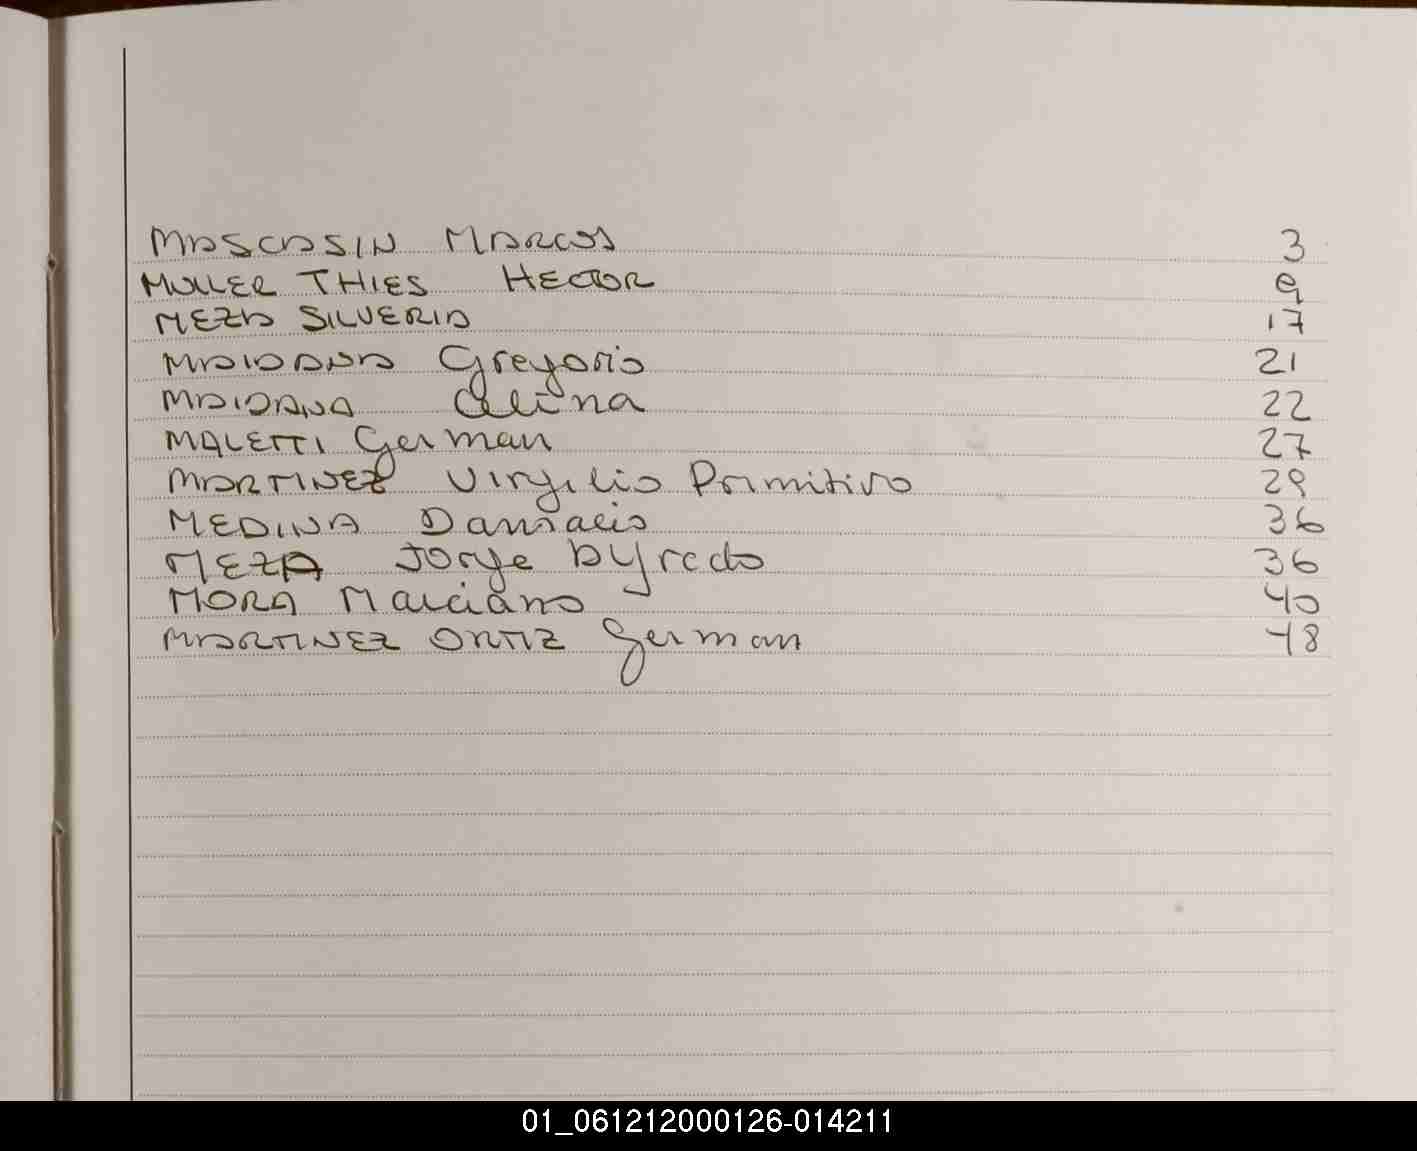 MASCASIN MARCOS 3
MULLER THIES HECTOR 9
MEZA SILVERIA 17
MAIDANA Gregorio 21
MAIDANA Celina 22
MALETTI German 27
MARTINEZ Virgilio Primitivo 29
MEDINA 36
MEZA Jorge Alfredo 36
MORA Marciano 40
MARTINEZ ORTIZ German 48
01_061212000126-014211